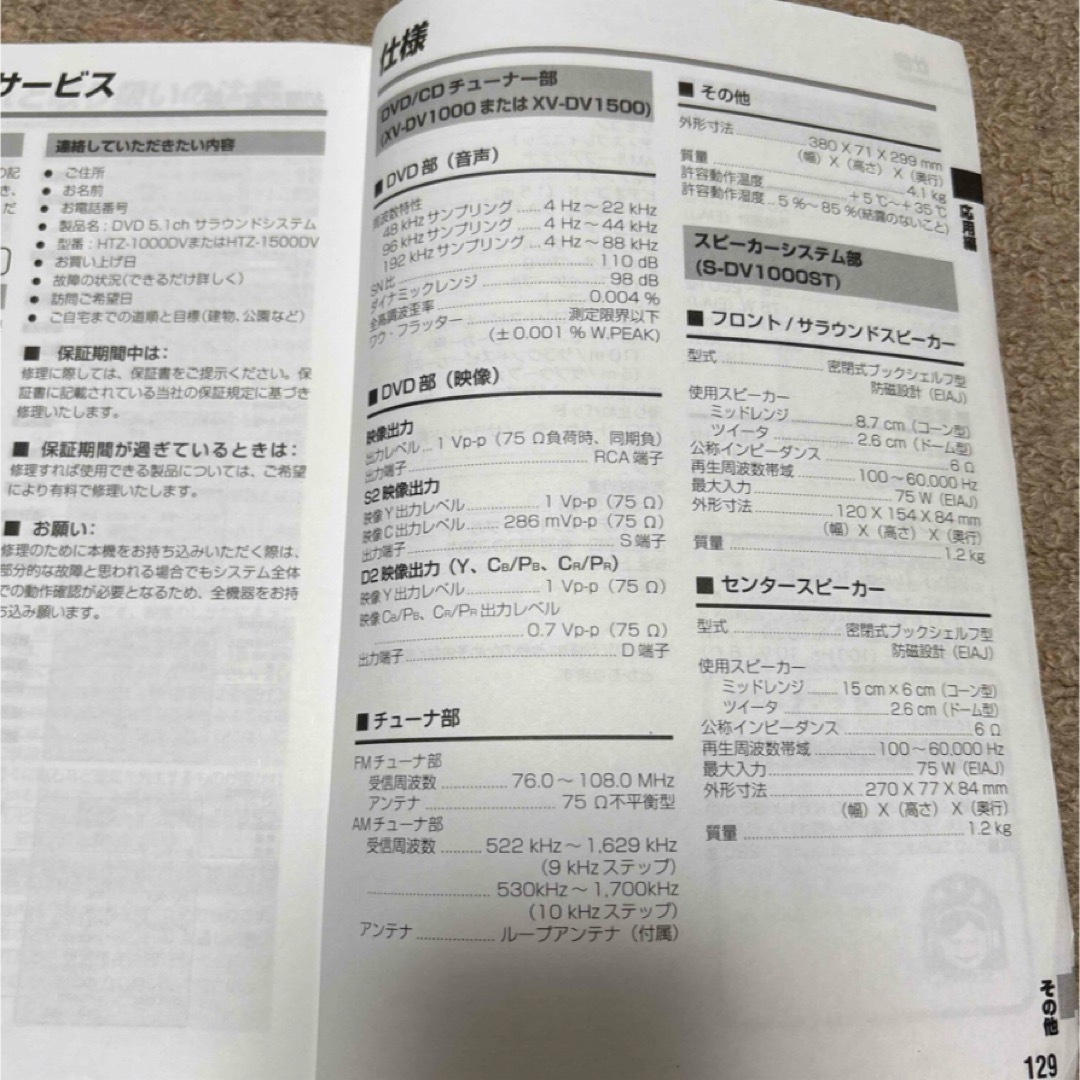 サービス
の記
き、
だ
連絡していただきたい内容
● ご住所
● お名前
● お電話番号
● 製品名：DVD 5.1ch サラウンドシステム
● 型番：HTZ-1000DVまたはHTZ-1500DV
● お買い上げ日
● 故障の状況(できるだけ詳しく)
● 訪問ご希望日
● ご自宅までの道順と目標(建物、公園など)
■ 保証期間中は：
修理に際しては、保証書をご提示ください。保
証書に記載されている当社の保証規定に基づき
修理いたします。
■ 保証期間が過ぎているときは：
修理すれば使用できる製品については、ご希望
により有料で修理いたします。
■ お願い：
修理のために本機をお持ち込みいただく際は、
部分的な故障と思われる場合でもシステム全体
での動作確認が必要となるため、全機器をお持
ち込み願います。
仕様
DVD/CD チューナー部
(XV-DV1000 または XV-DV1500)
■ DVD 部（音声）
周波数特性
48 kHz サンプリング ...... 4 Hz～22 kHz
96 kHz サンプリング ...... 4 Hz～44 kHz
192 kHz サンプリング .... 4 Hz～88 kHz
SN比 ...... 110 dB
ダイナミックレンジ ...... 98 dB
全高調波歪率 ...... 0.004 %
ワウ・フラッター ...... 測定限界以下
(± 0.001 % W.PEAK)
■ DVD 部（映像）
映像出力
出力レベル... 1 Vp-p（75 Ω負荷時、同期負）
出力端子 ...... RCA 端子
S2 映像出力
映像 Y 出力レベル ...... 1 Vp-p（75 Ω）
映像 C 出力レベル ...... 286 mVp-p（75 Ω）
出力端子 ...... S 端子
D2 映像出力（Y、CB/PB、CR/PR）
映像 Y 出力レベル ...... 1 Vp-p（75 Ω）
映像 CB/PB、CR/PR 出力レベル
...... 0.7 Vp-p（75 Ω）
出力端子 ...... D 端子
■ チューナ部
FM チューナ部
受信周波数 ...... 76.0～108.0 MHz
アンテナ ...... 75 Ω不平衡型
AM チューナ部
受信周波数 ...... 522 kHz～1,629 kHz
(9 kHz ステップ)
...... 530kHz～1,700kHz
(10 kHz ステップ)
アンテナ ...... ループアンテナ（付属）
■ その他
外形寸法 ...... 380 X 71 X 299 mm
（幅）X（高さ）X（奥行）
質量 ...... 4.1 kg
許容動作温度 ...... +5℃～+35℃
許容動作湿度 ... 5 %～85 %(結露のないこと)
スピーカーシステム部
(S-DV1000ST)
■ フロント / サラウンドスピーカー
型式 ...... 密閉式ブックシェルフ型
防磁設計（EIAJ）
使用スピーカー
ミッドレンジ ...... 8.7 cm（コーン型）
ツイータ ...... 2.6 cm（ドーム型）
公称インピーダンス ...... 6 Ω
再生周波数帯域 ...... 100～60,000 Hz
最大入力 ...... 75 W（EIAJ）
外形寸法 ...... 120 X 154 X 84 mm
（幅）X（高さ）X（奥行）
質量 ...... 1.2 kg
■ センタースピーカー
型式 ...... 密閉式ブックシェルフ型
防磁設計（EIAJ）
使用スピーカー
ミッドレンジ ...... 15 cm × 6 cm（コーン型）
ツイータ ...... 2.6 cm（ドーム型）
公称インピーダンス ...... 6 Ω
再生周波数帯域 ...... 100～60,000 Hz
最大入力 ...... 75 W（EIAJ）
外形寸法 ...... 270 X 77 X 84 mm
（幅）X（高さ）X（奥行）
質量 ...... 1.2 kg
応用編
その他
129